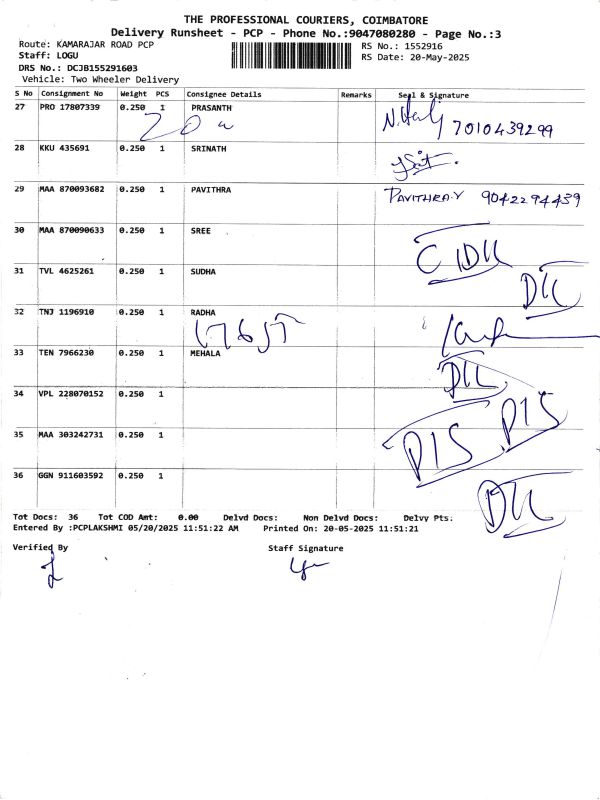 THE PROFESSIONAL COURIERS, COIMBATORE
Delivery Runsheet - PCP - Phone No.:9047080280 - Page No.:3
Route: KAMARAJAR ROAD PCP RS No.: 1552916
Staff: LOGU RS Date: 20-May-2025
DRS No.: DCJB155291603
Vehicle: Two Wheeler Delivery
S No Consignment No Weight PCS Consignee Details Remarks Seal & Signature
27 PRO 17807339 0.250 1 PRASANTH
7010439299
28 KKU 435691 0.250 1 SRINATH
29 MAA 870093682 0.250 1 PAVITHRA PAVITHRA.Y 9042294439
30 MAA 870090633 0.250 1 SREE
31 TVL 4625261 0.250 1 SUDHA
32 TNJ 1196910 0.250 1 RADHA
33 TEN 7966230 0.250 1 MEHALA
34 VPL 228070152 0.250 1
35 MAA 303242731 0.250 1
36 GGN 911603592 0.250 1
Tot Docs: 36 Tot COD Amt: 0.00 Delvd Docs: Non Delvd Docs: Delvy Pts:
Entered By :PCPLAKSHMI 05/20/2025 11:51:22 AM Printed On: 20-05-2025 11:51:21
Verified By Staff Signature